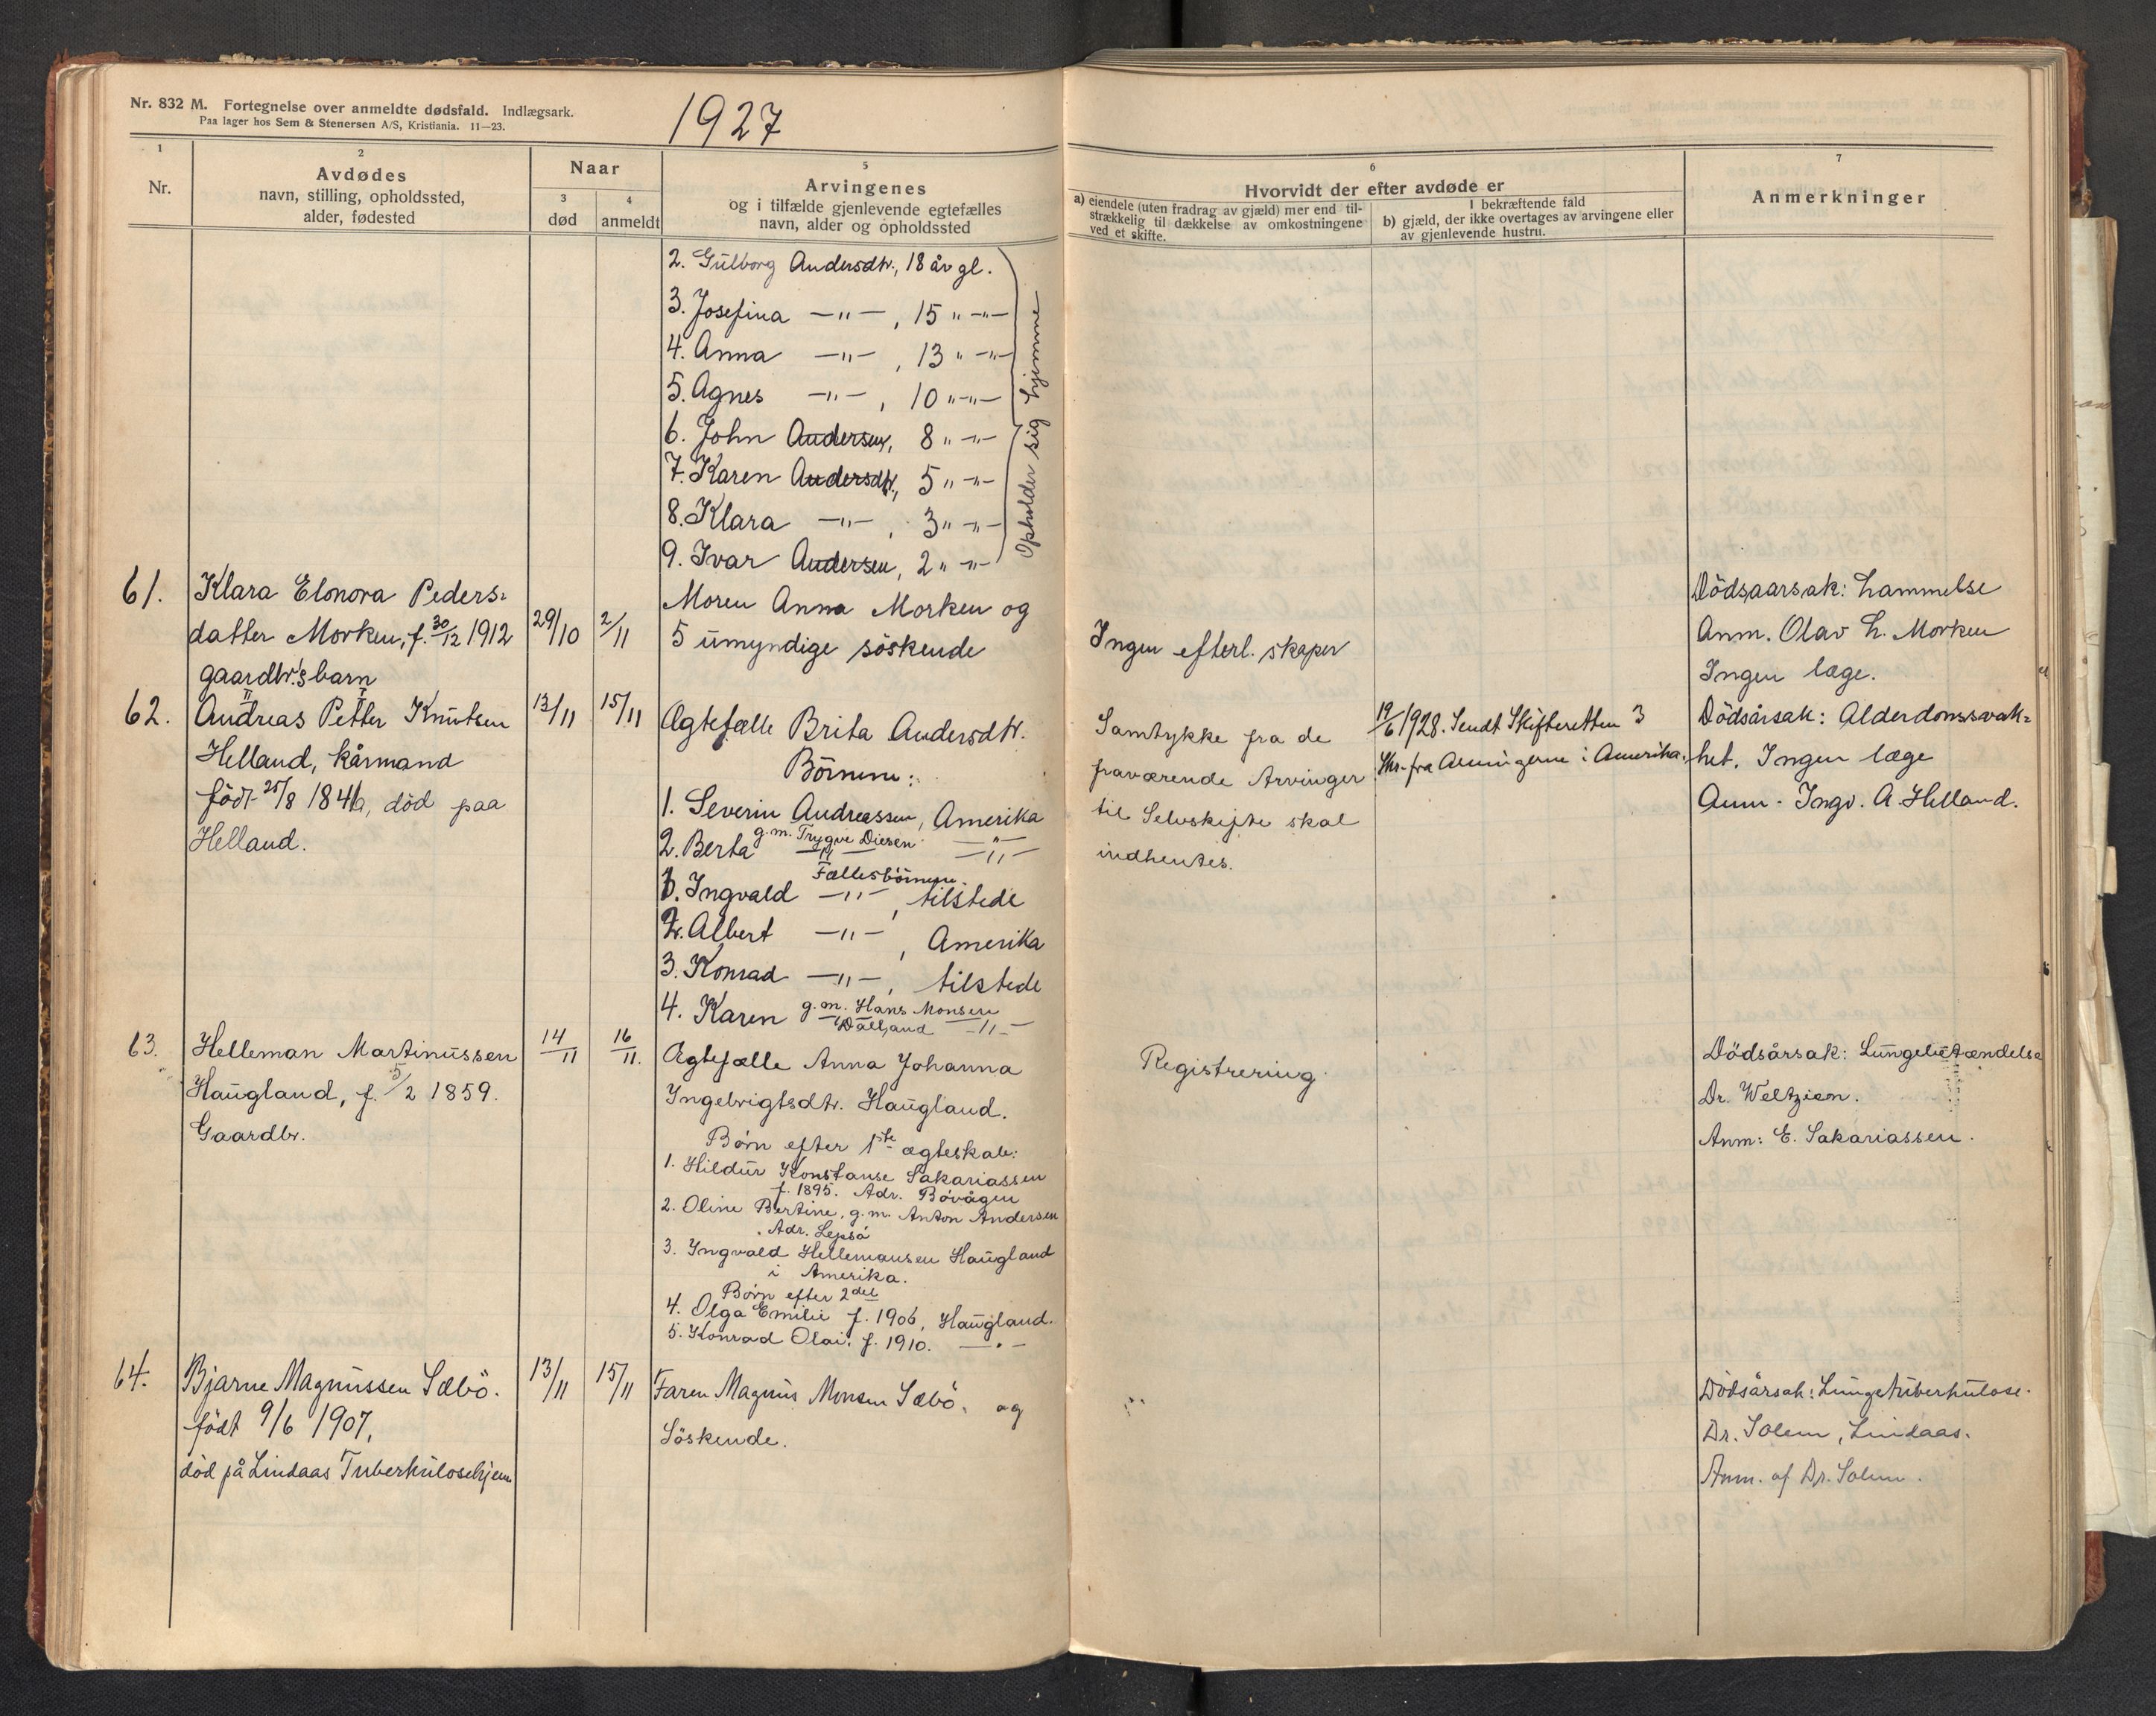 Nr. 832 M. Fortegnelse over anmeldte dødsfald. Indlægsark.
Paa lager hos Sem & Stenersen A/S, Kristiania. 11—23.
1927
1
Nr.
2
Avdødes
navn, stilling, opholdssted,
alder, fødested
Naar
3
død
4
anmeldt
5
Arvingenes
og i tilfælde gjenlevende egtefælles
navn, alder og opholdssted
6
Hvorvidt der efter avdøde er
a) eiendele (uten fradrag av gjæld) mer end til-
strækkelig til dækkelse av omkostningene
ved et skifte.
I bekræftende fald
b) gjæld, der ikke overtages av arvingene eller
av gjenlevende hustru.
7
Anmerkninger
2. Gulborg Andersdtr., 18 år gl.
3. Josefina —"—, 15 " —"—
4. Anna —"—, 13 " —"—
5. Agnes —"—, 10 " —"—
6. John Andersen, 8 " —"—
7. Karen Andersdtr., 5 " —"—
8. Klara —"—, 3 " —"—
9. Ivar Andersen, 2 " —"—
Opholder sig hjemme
61.
Klara Elonora Peders-
datter Morken, f. 30/12 1912
gaardbr.'s barn
29/10
2/11
Moren Anna Morken og
5 umyndige søskende
Ingen efterl. skaper
Dödsaarsak: Lammelse
Anm. Olav L. Morken
Ingen læge.
62.
Andreas Petter Knutsen
Helland, kårmand
födt 25/8 1841, död paa
Helland.
13/11
15/11
Ægtefælle Brita Andersdtr.
Börnene:
1. Severin Andreassen, Amerika
2. Berta g.m. Trygve Diesen —"—
Fællesbörnene.
1. Ingvald —"—, tilstede
2. Albert —"—, Amerika
3. Konrad —"—, tilstede
4. Karen g.m. Hans Monsen
Dalland —"—
Samtykke fra de
fraværende Arvinger
til Selvskifte skal
indhentes.
19/6 1928. Sendt Skifteretten 3
Skr. fra Arvingerne i Amerika.
Dödsårsak: Alderdomssvak-
het. Ingen læge
Anm. Ingv. A. Helland.
63.
Helleman Martinussen
Haugland, f. 5/2 1859.
Gaardbr.
14/11
16/11.
Ægtefælle Anna Johanna
Ingebrigtsdtr. Haugland.
Børn efter 1ste ægteskab:
1. Hildur Konstanse Sakariassen
f. 1895. Adr. Bövågen
2. Oline Bertine, g.m. Anton Andersen
Adr. Lepsö
3. Ingvald Hellemansen Haugland
i Amerika.
Børn efter 2det
4. Olga Emilie f. 1906, Haugland.
5. Konrad Olai. f. 1910. —"—
Registrering
Dödsårsak: Lungebetændelse
Dr. Weltzien.
Anm: E. Sakariassen.
64.
Bjarne Magnussen Sæbö.
födt 9/6 1907,
död på Lindaas Tuberkulosehjem
13/11
15/11
Faren Magnus Monsen Sæbö. og
Söskende.
Dödsårsak: Lungetuberkulose.
Dr. Solem, Lindaas.
Anm. af Dr. Solem.